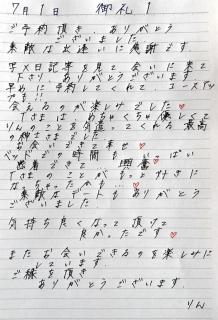 7月1日 御礼1
ご予約頂き ありがとう
ございました
素敵な出逢いに感謝です
写メ日記等を見て会いに来て
下さり ありがとうございます
早めに予約してくれ
えるのが楽しみでした♥
Tさまは めちゃくちゃ優しくて
りんのことを気遣ってくれる最高
の紳士さまでした
お会いできて幸せ♡
ベッドの時間も いっぱい
密着できて 興奮♡
Tさまのことが もっと好きに
なっちゃったかも…♥
素敵なデートもありがとう
ございました
気持ち良くなって頂けて
良かったです♡
またお会いできるのを楽しみに
しています
ご縁を頂き
ありがとうございます
りん